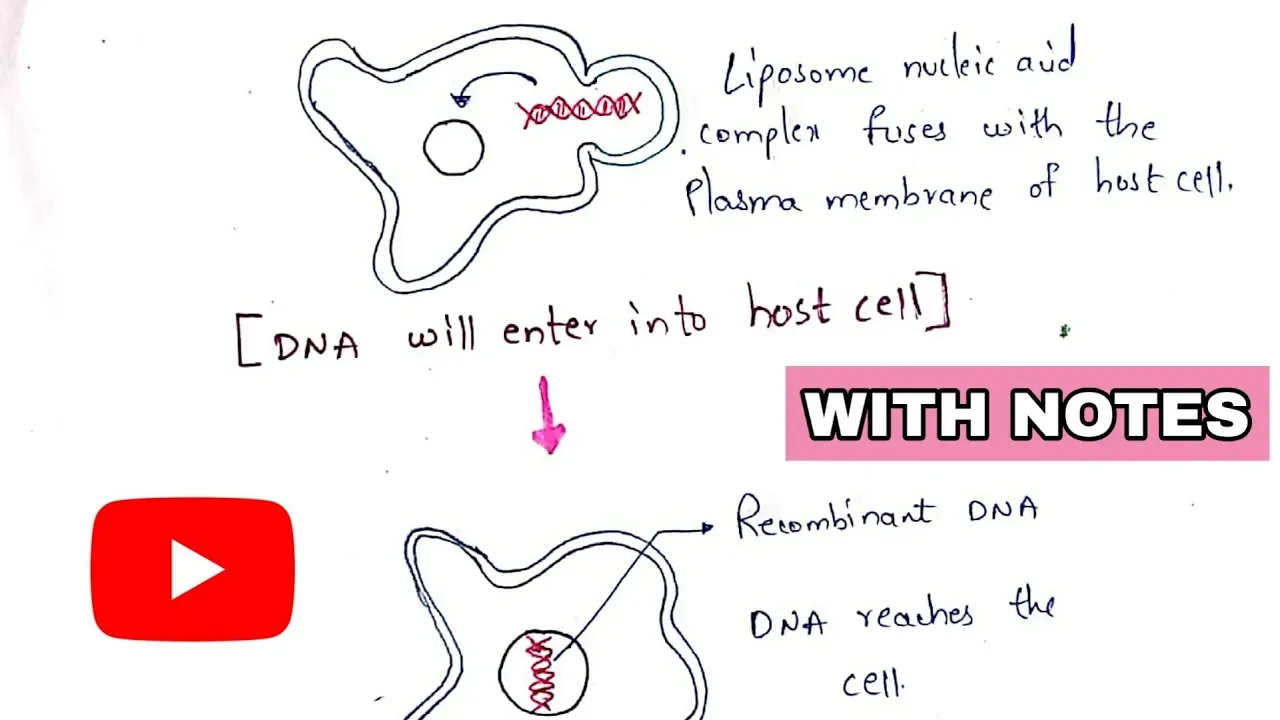 Liposome nucleic acid
complex fuses with the
Plasma membrane of host cell.
[DNA will enter into host cell]
WITH NOTES
Recombinant DNA
DNA reaches the
cell.